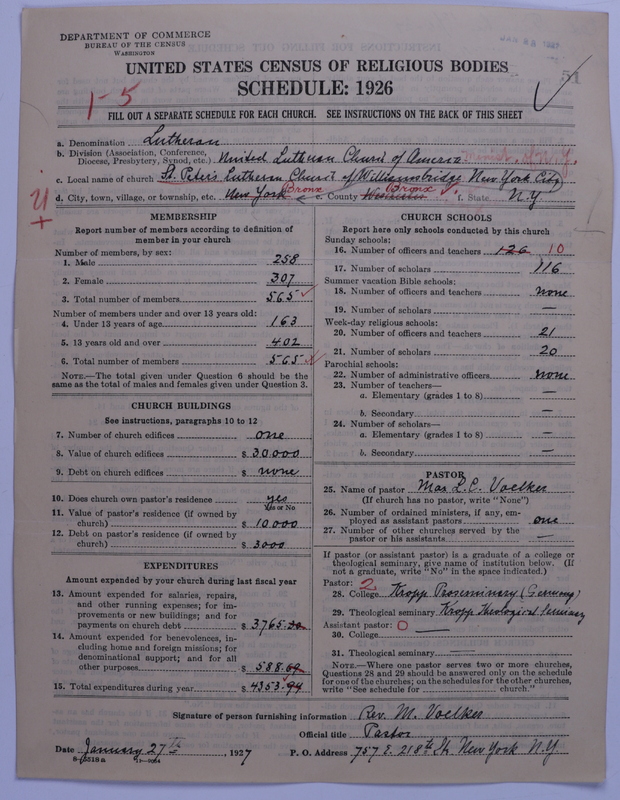 DEPARTMENT OF COMMERCE
BUREAU OF THE CENSUS
WASHINGTON
UNITED STATES CENSUS OF RELIGIOUS BODIES
SCHEDULE: 1926
51
1-5
FILL OUT A SEPARATE SCHEDULE FOR EACH CHURCH. SEE INSTRUCTIONS ON THE BACK OF THIS SHEET
a. Denomination Lutheran
b. Division (Association, Conference, Diocese, Presbytery, Synod, etc.) United Lutheran Church of America
c. Local name of church St. Peter's Lutheran Church of Williamsbridge New York City
d. City, town, village, or township, etc. New York Bronx e. County Westchester Bronx f. State N.Y.
MEMBERSHIP
Report number of members according to definition of
member in your church
Number of members, by sex:
1. Male 258
2. Female 307
3. Total number of members 565
Number of members under and over 13 years old:
4. Under 13 years of age 163
5. 13 years old and over 402
6. Total number of members 565
NOTE.—The total given under Question 6 should be
same as the total of males and females given under Question 3.
CHURCH BUILDINGS
See instructions, paragraphs 10 to 12
7. Number of church edifices one
8. Value of church edifices $ 30000
9. Debt on church edifices $ none
10. Does church own pastor's residence yes
Yes or No
11. Value of pastor's residence (if owned by
church) $ 10000
12. Debt on pastor's residence (if owned by
church) $ 3000
EXPENDITURES
Amount expended by your church during last fiscal year
13. Amount expended for salaries, repairs,
and other running expenses; for im-
provements or new buildings; and for
payments on church debt $ 3765.
14. Amount expended for benevolences, in-
cluding home and foreign missions; for
denominational support; and for all
other purposes $ 588.
15. Total expenditures during year $ 4353.94
CHURCH SCHOOLS
Report here only schools conducted by this church
Sunday schools:
16. Number of officers and teachers 126 10
17. Number of scholars 116
Summer vacation Bible schools:
18. Number of officers and teachers none
19. Number of scholars —
Week-day religious schools:
20. Number of officers and teachers 21
21. Number of scholars 20
Parochial schools:
22. Number of administrative officers none
23. Number of teachers—
a. Elementary (grades 1 to 8) —
b. Secondary —
24. Number of scholars—
a. Elementary (grades 1 to 8) —
b. Secondary —
PASTOR
25. Name of pastor Max L.C. Voelker
(If church has no pastor, write "None")
26. Number of ordained ministers, if any, em-
ployed as assistant pastors one
27. Number of other churches served by the
pastor or his assistants —
If pastor (or assistant pastor) is a graduate of a college or
theological seminary, give name of institution below. (If
not a graduate, write "No" in the space indicated.)
Pastor: 2
28. College Kropp Proseminary (Germany)
29. Theological seminary Kropp Theological Seminary
Assistant pastor: 0
30. College —
31. Theological seminary —
NOTE.—Where one pastor serves two or more churches,
Questions 28 and 29 should be answered only on the schedule
for one of the churches; on the schedules for the other churches,
write "See schedule for church."
Signature of person furnishing information Rev. M. Voelker
Official title Pastor
Date January 27th, 1927 P. O. Address 757 E. 218th St. New York N.Y.
8-5518a